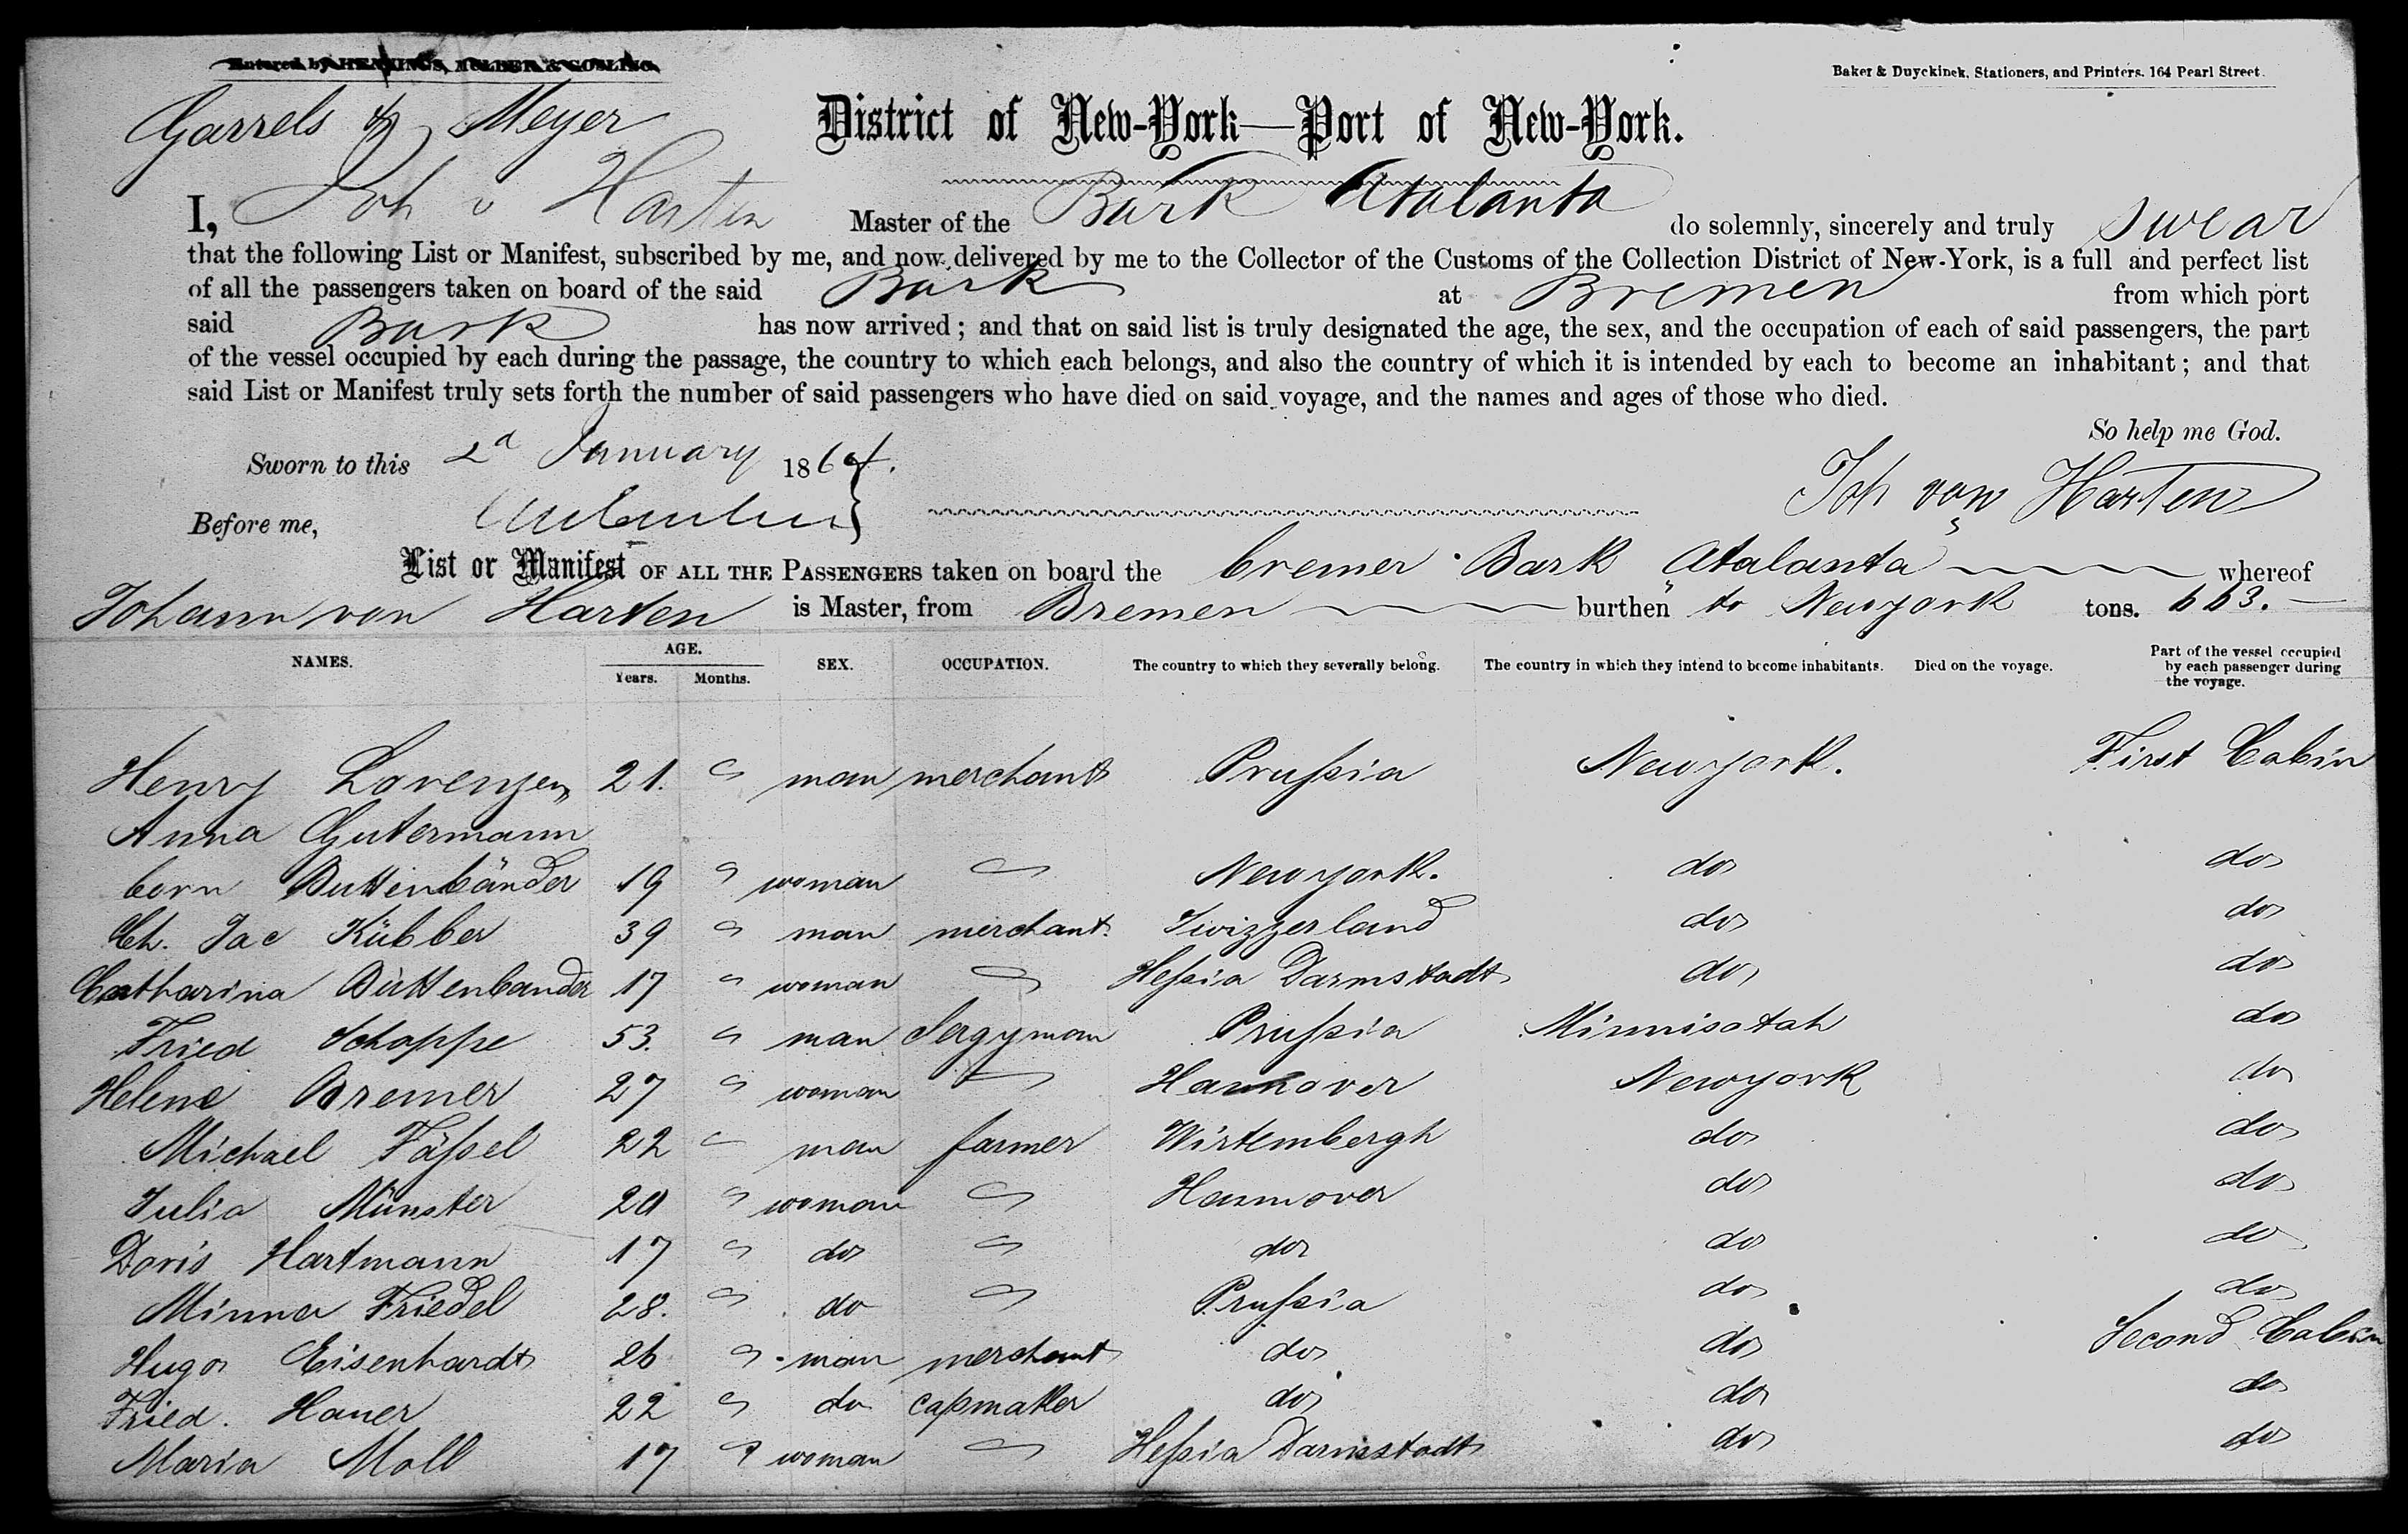 Entered by HENINGS, MULDER & GOSLING
Baker & Duyckinck, Stationers, and Printers. 164 Pearl Street.
Garrels & Meyer
District of New-York—Port of New-York.
I, Joh v Harten Master of the Bark Atalanta do solemnly, sincerely and truly swear
that the following List or Manifest, subscribed by me, and now delivered by me to the Collector of the Customs of the Collection District of New-York, is a full and perfect list
of all the passengers taken on board of the said Bark at Bremen from which port
said Bark has now arrived; and that on said list is truly designated the age, the sex, and the occupation of each of said passengers, the part
of the vessel occupied by each during the passage, the country to which each belongs, and also the country of which it is intended by each to become an inhabitant; and that
said List or Manifest truly sets forth the number of said passengers who have died on said voyage, and the names and ages of those who died.
So help me God.
Sworn to this 2d January 1864.
Joh von Harten
Before me,
List or Manifest OF ALL THE PASSENGERS taken on board the bremer Bark Atalanta whereof
Johann von Harten is Master, from Bremen burthen to Newyork tons. 663.
NAMES. AGE. Years. Months. SEX. OCCUPATION. The country to which they severally belong. The country in which they intend to become inhabitants. Died on the voyage. Part of the vessel occupied by each passenger during the voyage.
Henry Lorenzen 21. " man merchant Prußia Newyork. First Cabin
Anna Gutermann
born Büttenbänder 19 " woman " Newyork. do do
Ch. Jac Kübber 39 " man merchant. Swizzerland do do
Catharina Büttenbander 17 " woman " Heßia Darmstadt do do
Fried Schoppe 53. " man clergyman Prußia Minnisotah do
Helene Bremer 27 " woman " Hannover Newyork do
Michael Fäßel 22 " man farmer Wirtembergh do do
Julia Münster 20 " woman " Hannover do do
Doris Hartmann 17 " do " do do do
Minna Friedel 28. " do " Prußia do do
Hugo Eisenhardt 26 " man merchant do do Second Cabin
Fried. Hauer 22 " do capmaker do do do
Maria Moll 17 " woman " Heßia Darmstadt do do